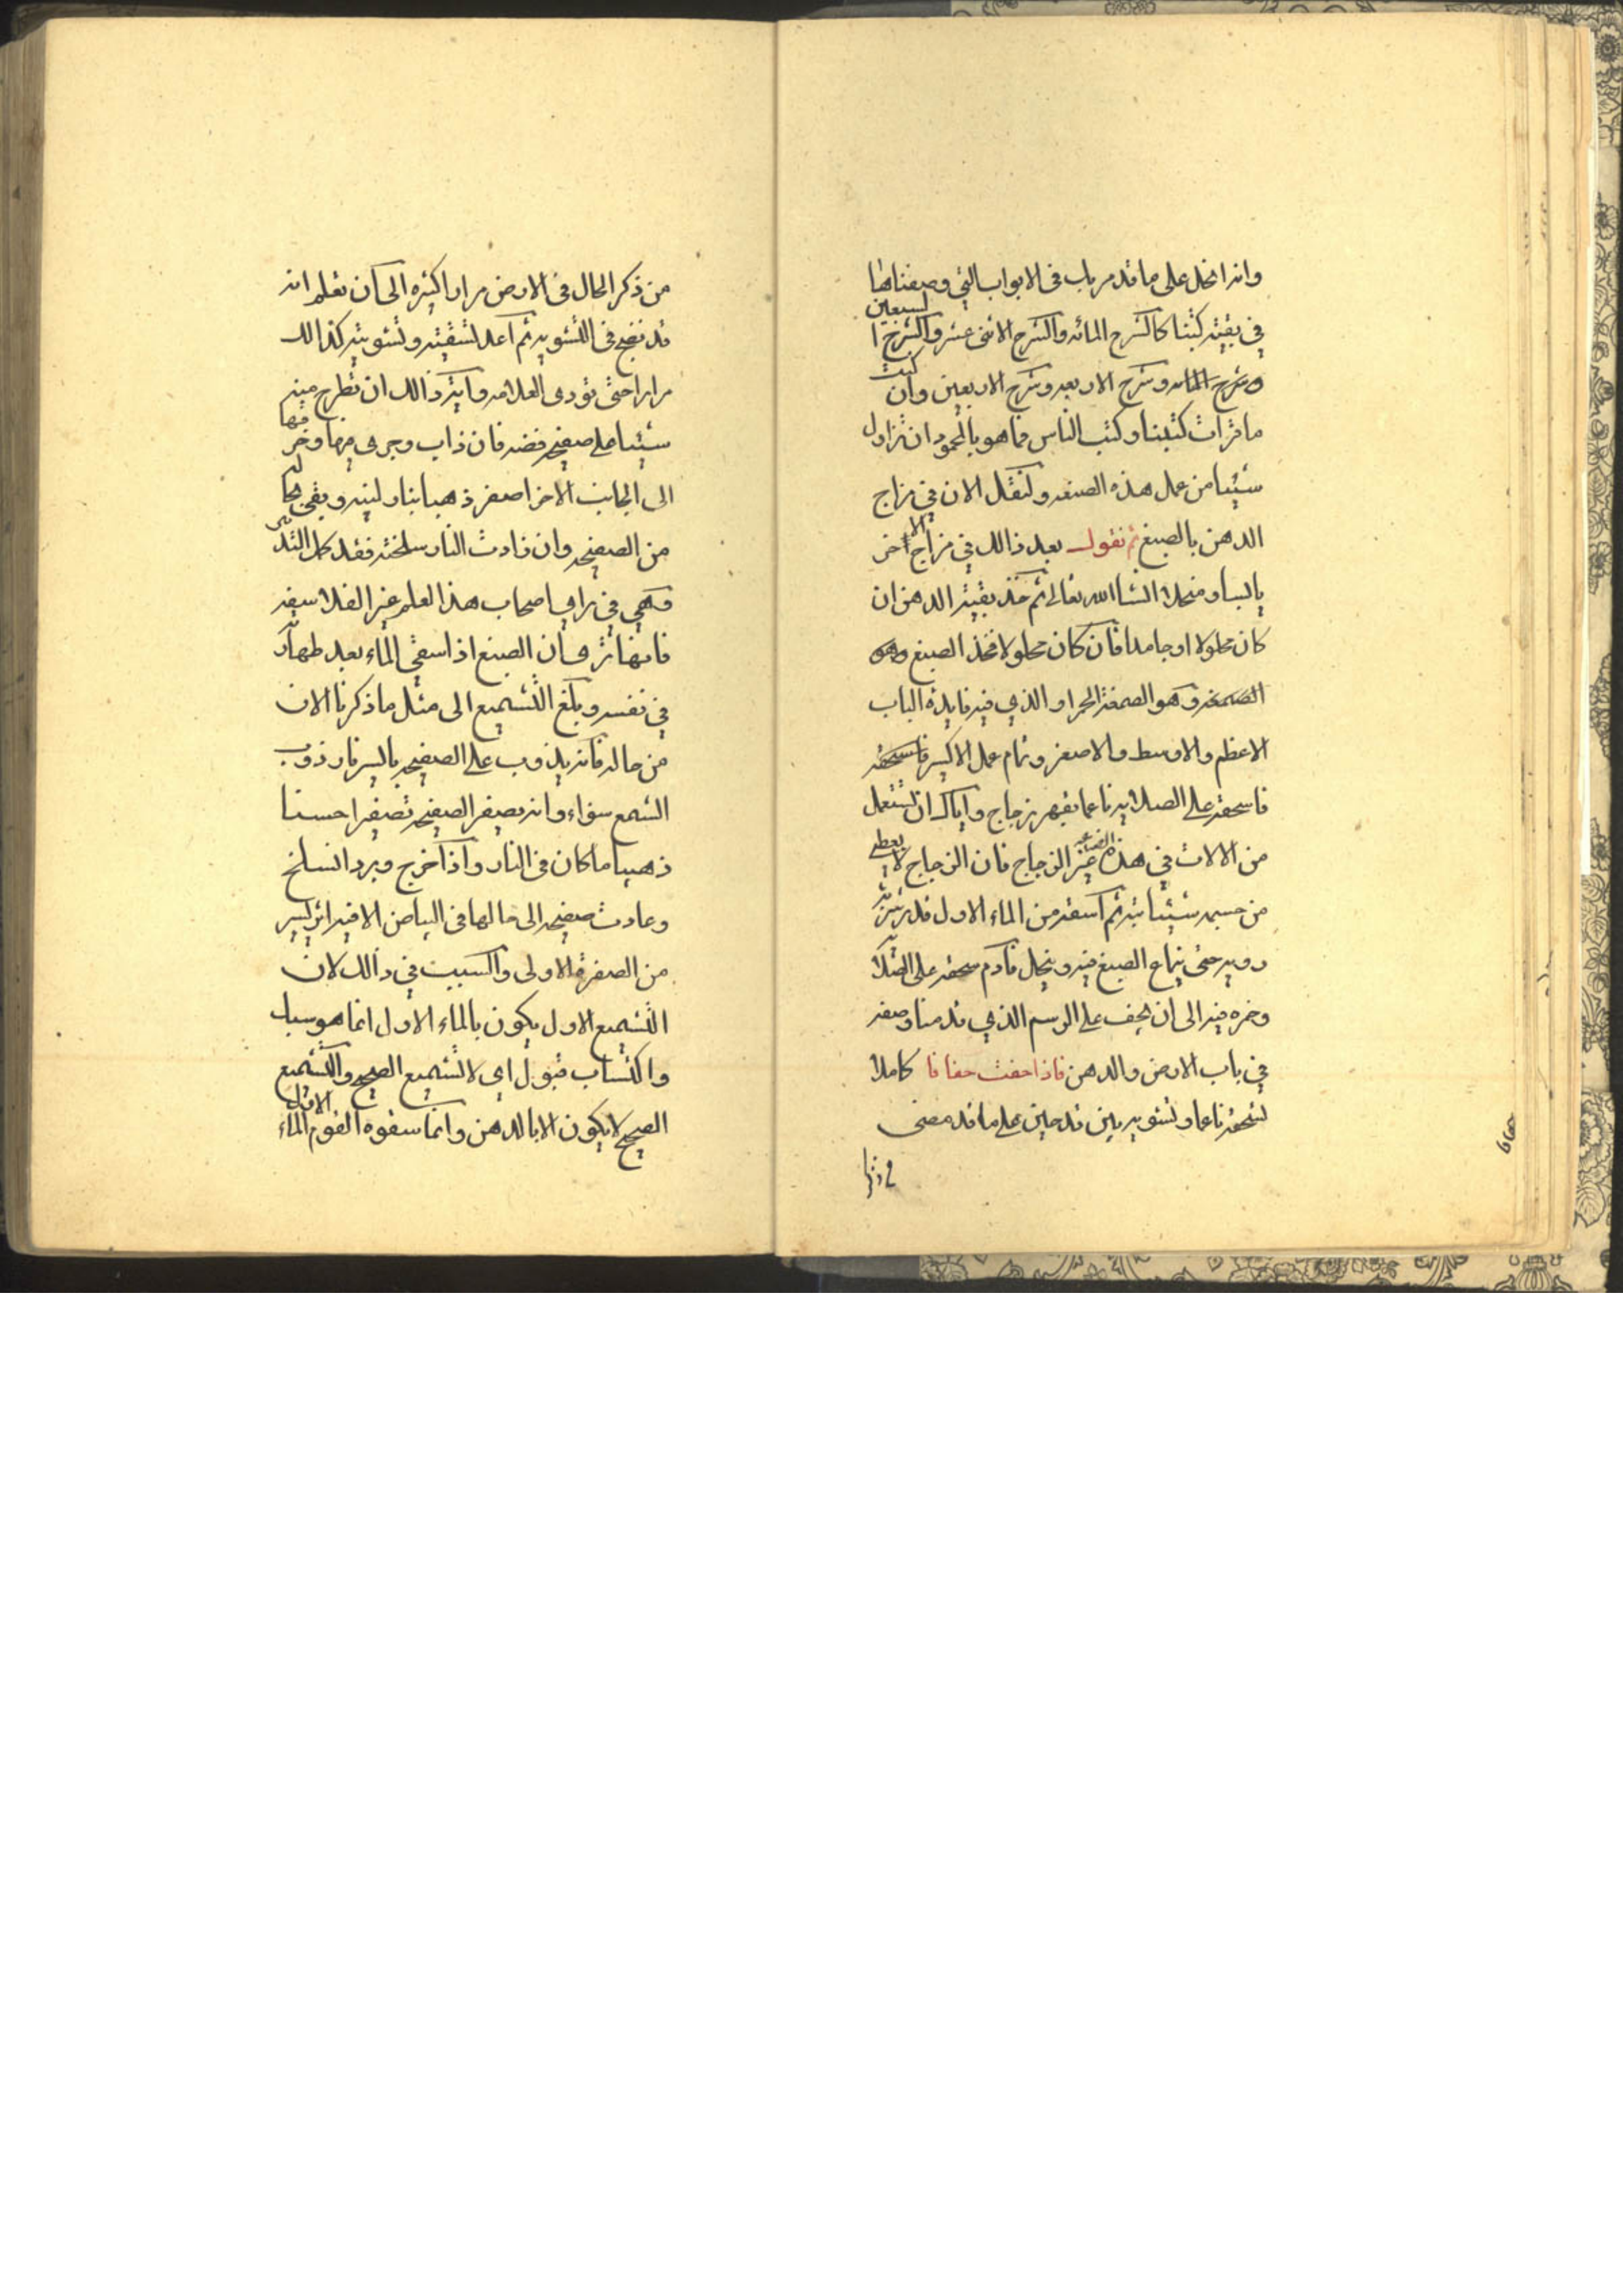 وانه انحل على ما قد مر باب في الابواب التي وصفناها
في بقية كتبنا كالشرح المائه والشرح الاثنى عشر والشرح السبعين
وشرح المائه وشرح الاربعه وشرح الاربعين وان كنت
ما قرات كتبنا وكتب الناس فما هو بالمحمود ان تزاول
شيئا من عمل هذه الصنعه ولنقل الان في مزاج
الدهن بالصبغ ثم نقول بعد ذالك في مزاج الاخر
ثم خذ بقية الدهن ان
كان محلولا او جامدا فان كان محلولا فخذ الصبغ وهو
الصمغه وهو الصمغة الحمراء والذي فيه فايدة الباب
الاعظم والاوسط والاصغر وتمام عمل الاكسير
فاسحقه على الصلايه ناعما بفهر زجاج واياك ان تستعمل
من الالات في هذه الصناعة غير الزجاج فان الزجاج لا يعطي
من جسمه شيئا بته ثم اسقه من الماء الاول قد
رويه حتى ينماع الصبغ فيه وينحل فادم سحقه على الصلا
وخره فيه الى ان يجف على الرسم الذي قدمنا وصفه
في باب الارض والدهن فاذا جفت جفافا كاملا
تسحقه ناعما وتشويه بين قدحين على ما قد مضى
من ذكر الحال في الارض مرارا كثيره الى ان تعلم انه
قد نضج في التشويه ثم اعد تسقيته وتشويته كذالك
مرارا حتى تودى العلامه وايته ذالك ان تطرح منه
شيئا على صفيحه فضه فان ذاب وجرى فيها وخر
الى الجانب الاخر اصفر ذهبيا بنار لينه وبقي
من الصفيحه وان زادت النار سلخته فقد كمل التد
وهي في راي اصحاب هذا العلم غير الفلاسفه
فانها ان الصبغ اذا سقي الماء بعد طهار
في نفسه وبلغ التشميع الى مثل ما ذكرنا الان
من حاله فانه يذوب على الصفيحه بايسر نار ذوب
الشمع سواء وانه يصفر الصفيحه تصفيرا حسنا
ذهبيا ما كان في النار واذا اخرج وبرد انسلخ
وعادت صفيحه الى حالها في البياض الا فيه اثر يسير
من الصفرة الاولى والسبب في ذالك لان
التشميع الاول يكون بالماء الاول انما هو سبك
واكتساب قبول اى لا تشميع الصحيح والتشميع
الصحيح لا يكون الا بالدهن وانما سقوه القوم الماء الاول